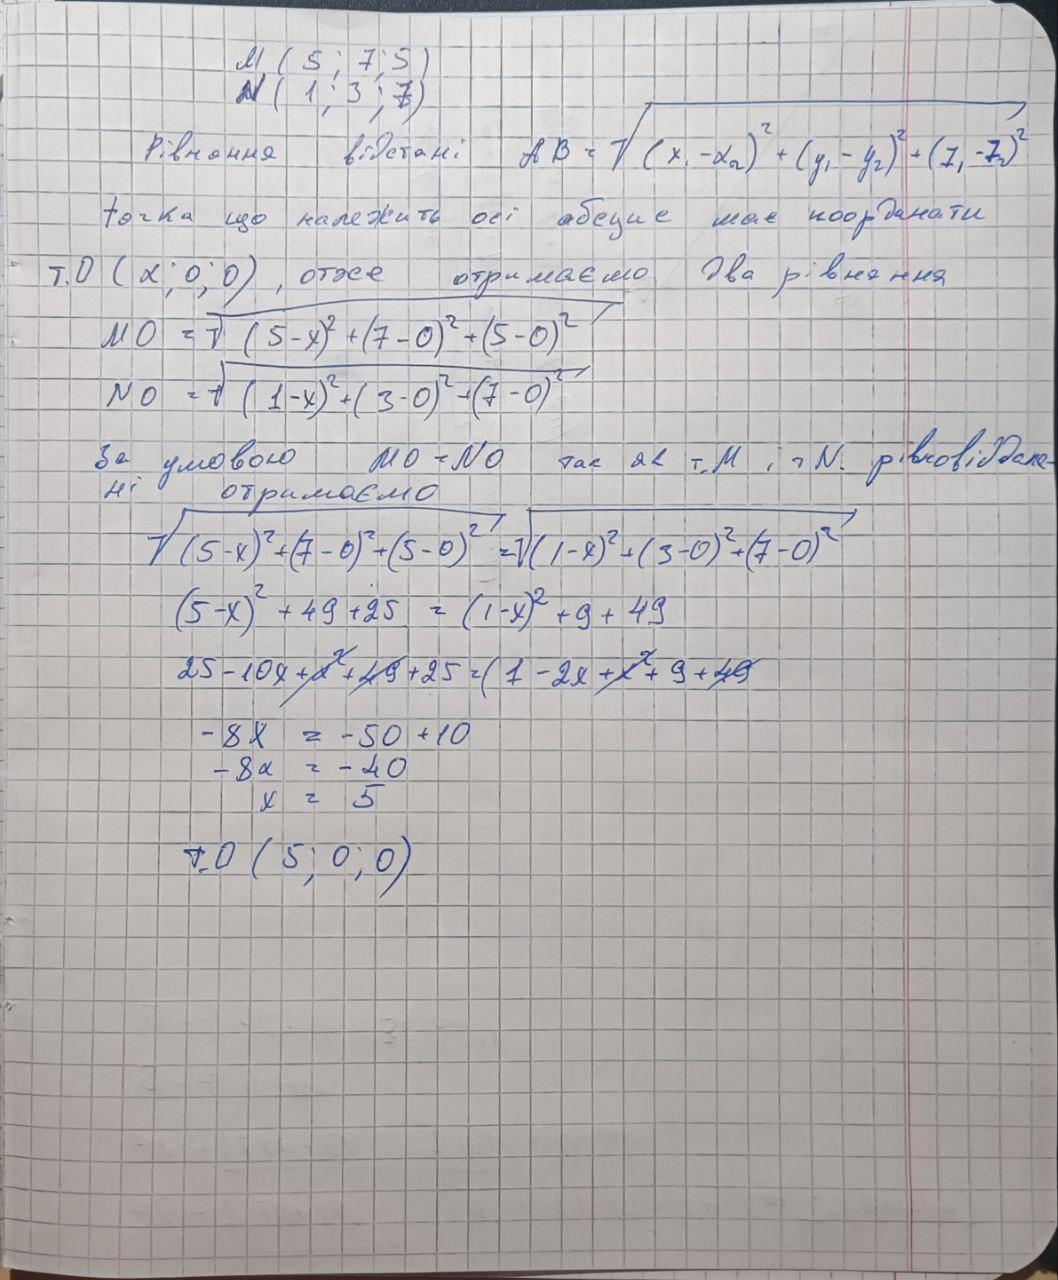 M ( 5 ; 7 ; 5 )
N ( 1 ; 3 ; 7 )
Рівняння відстані AB = √(x₁ - x₂)² + (y₁ - y₂)² + (z₁ - z₂)²
точка що належить осі абсцис має координати
т.О ( x ; 0 ; 0 ) , отже отримаємо два рівняння
MO = √(5-x)² + (7-0)² + (5-0)²
NO = √(1-x)² + (3-0)² + (7-0)²
За умовою MO = NO так як т.M і т N. рівновіддале-
ні отримаємо
√(5-x)² + (7-0)² + (5-0)² = √(1-x)² + (3-0)² + (7-0)²
(5-x)² + 49 + 25 = (1-x)² + 9 + 49
25 - 10x + x² + 49 + 25 = (1 - 2x + x² + 9 + 49
-8x = -50 + 10
-8x = -40
x = 5
т.О ( 5 ; 0 ; 0 )